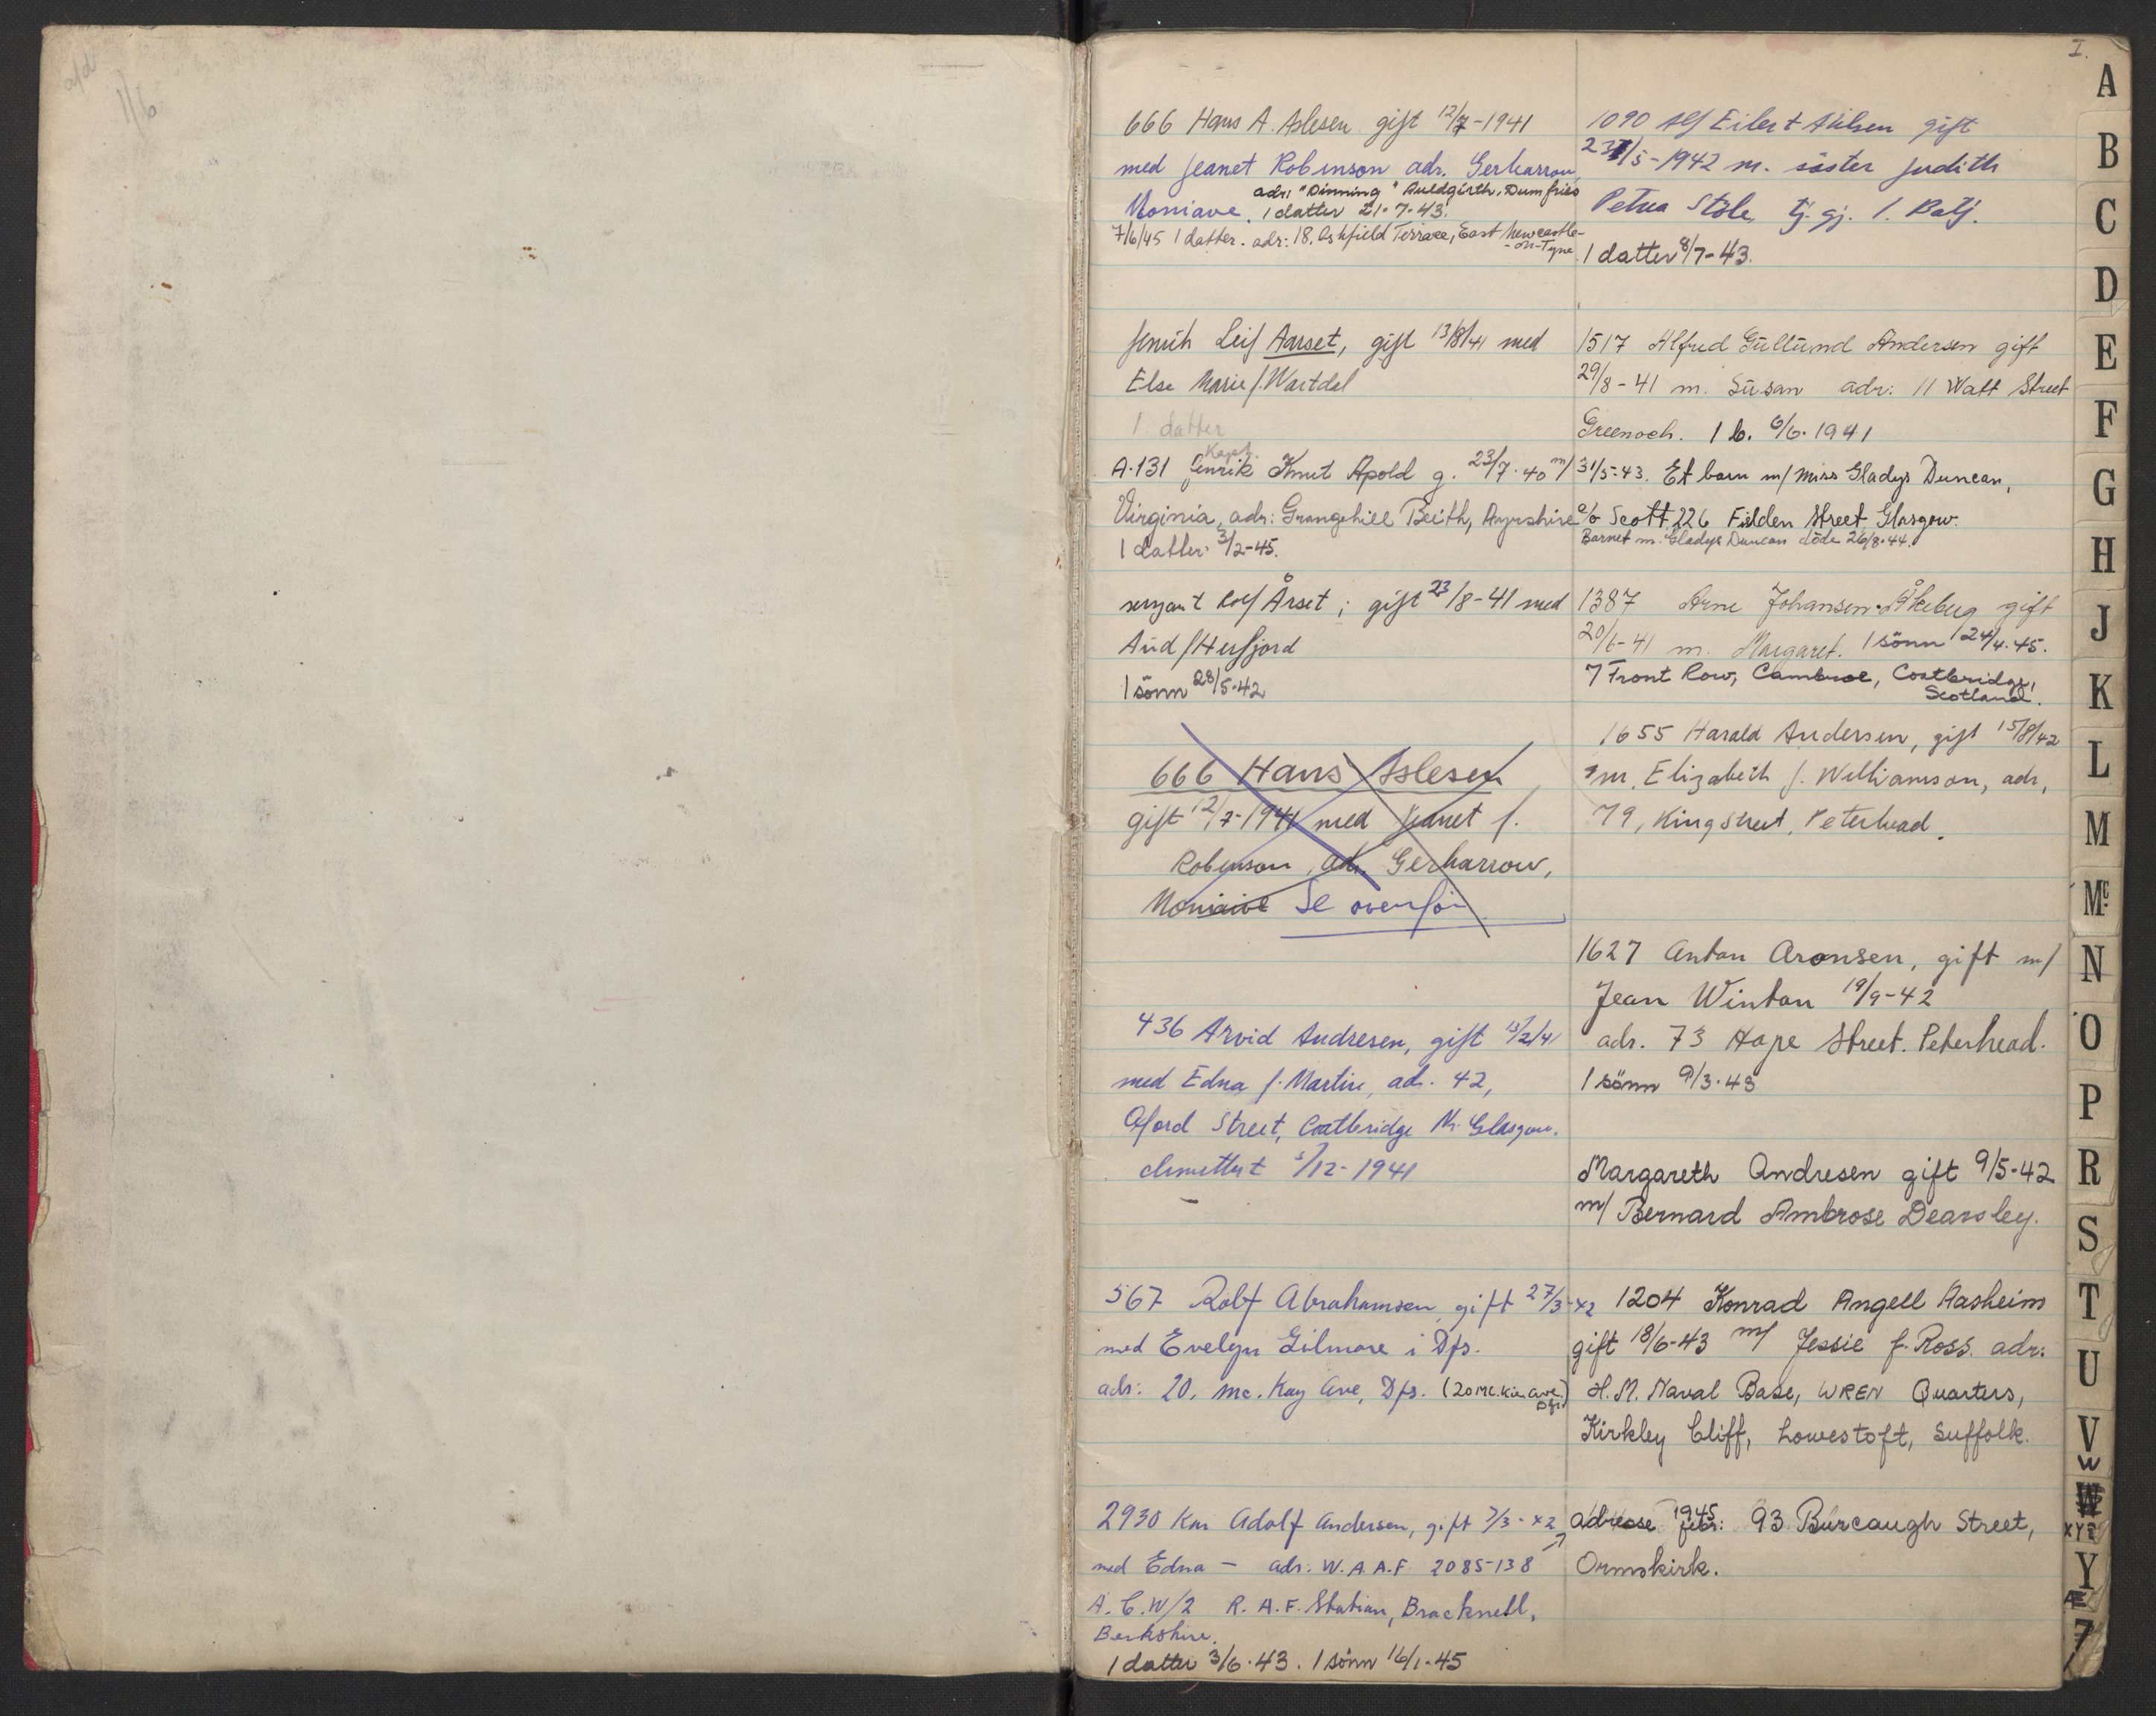 1/6
I.
666 Hans A. Aslesen gift 12/7-1941
med Jeanet Robinson adr. Gerharrow,
adr. "Dinning" Auldgirth, Dumfries
Moniave. 1 datter 21-7-43.
7/6/45 1 datter. adr: 18, Ashfield Terrace, East Newcastle-
-on-Tyne
fenrik Leif Aarset, gift 13/8/41 med
Else Marie f. Wartdal
1 datter
Kapt.
A-131 fenrik Knut Apold g. 23/7-40 m/
Virginia, adr: Grangehill Beith, Ayrshire
1 datter 3/2-45.
sersjant Rolf Årset; gift 23/8-41 med
Aud f Herfjord
1 sönn 28/5-42
666 Hans Aslesen
gift 12/7-1941 med Jeanet f.
Robinson, adr. Gerharrow,
Moniaive Se ovenfor
436 Arvid Andresen, gift 15/2/41
med Edna f. Martin, adr. 42,
Oxford Street, Coatbridge Nr. Glasgow.
dimittert 5/12-1941
567 Rolf Abrahamsen, gift 27/3-42
med Evelyn Gilmore i Dfs.
adr: 20, Mc. Kay Ave, Dfs. (20 Mc.Kie Ave. Dfs.)
2930 Kar Adolf Andersen, gift 7/3-42
med Edna — adr: W.A.A.F. 2085138
A.C.W/2 R.A.F. Station, Bracknell,
Berkshire.
1 datter 3/6-43. 1 sönn 16/1-45
1090 Alf Eilert gift
23/5-1942 m. söster Judith
Petra Stöle, tj. gj. 1. Batj.
1 datter 8/7-43.
1517 Alfred Gullund Andersen gift
29/8-41 m. Susan adr: 11 Watt Street
Greenoch. 1 b. 6/6-1941
31/5-43. Et barn m/ Miss Gladys Duncan,
c/o Scott, 226 Fielden Street, Glasgow.
Barnet m. Gladys Duncan döde 26/8-44.
1387 Arne Johansen-Åkeberg gift
20/6-41 m. Margaret. 1 sönn 24/4-45.
7 Front Row, Cambroe, Coatbridge,
Scotland.
1655 Harald Andersen, gift 15/8/42
m. Elizabeth f. Williamson, adr,
79, King Street, Peterhead.
1627 Anton Aronsen, gift m/
Jean Winton 19/9-42
adr. 73 Hope Street. Peterhead.
1 sönn 9/3-43
Margareth Andresen gift 9/5-42
m/ Bernard Ambrose Dearsley.
1204 Konrad Angell Aasheim
gift 18/6-43 m/ Jessie f. Ross. adr:
H.M. Naval Base, WREN Quarters,
Kirkley Cliff, Lowestoft, Suffolk.
adresse 1945 febr: 93 Burcaugh Street,
Ormskirk.
A
B
C
D
E
F
G
H
J
K
L
M
Mc
N
O
P
R
S
T
U
V
W
W
XYZ
Y
Æ